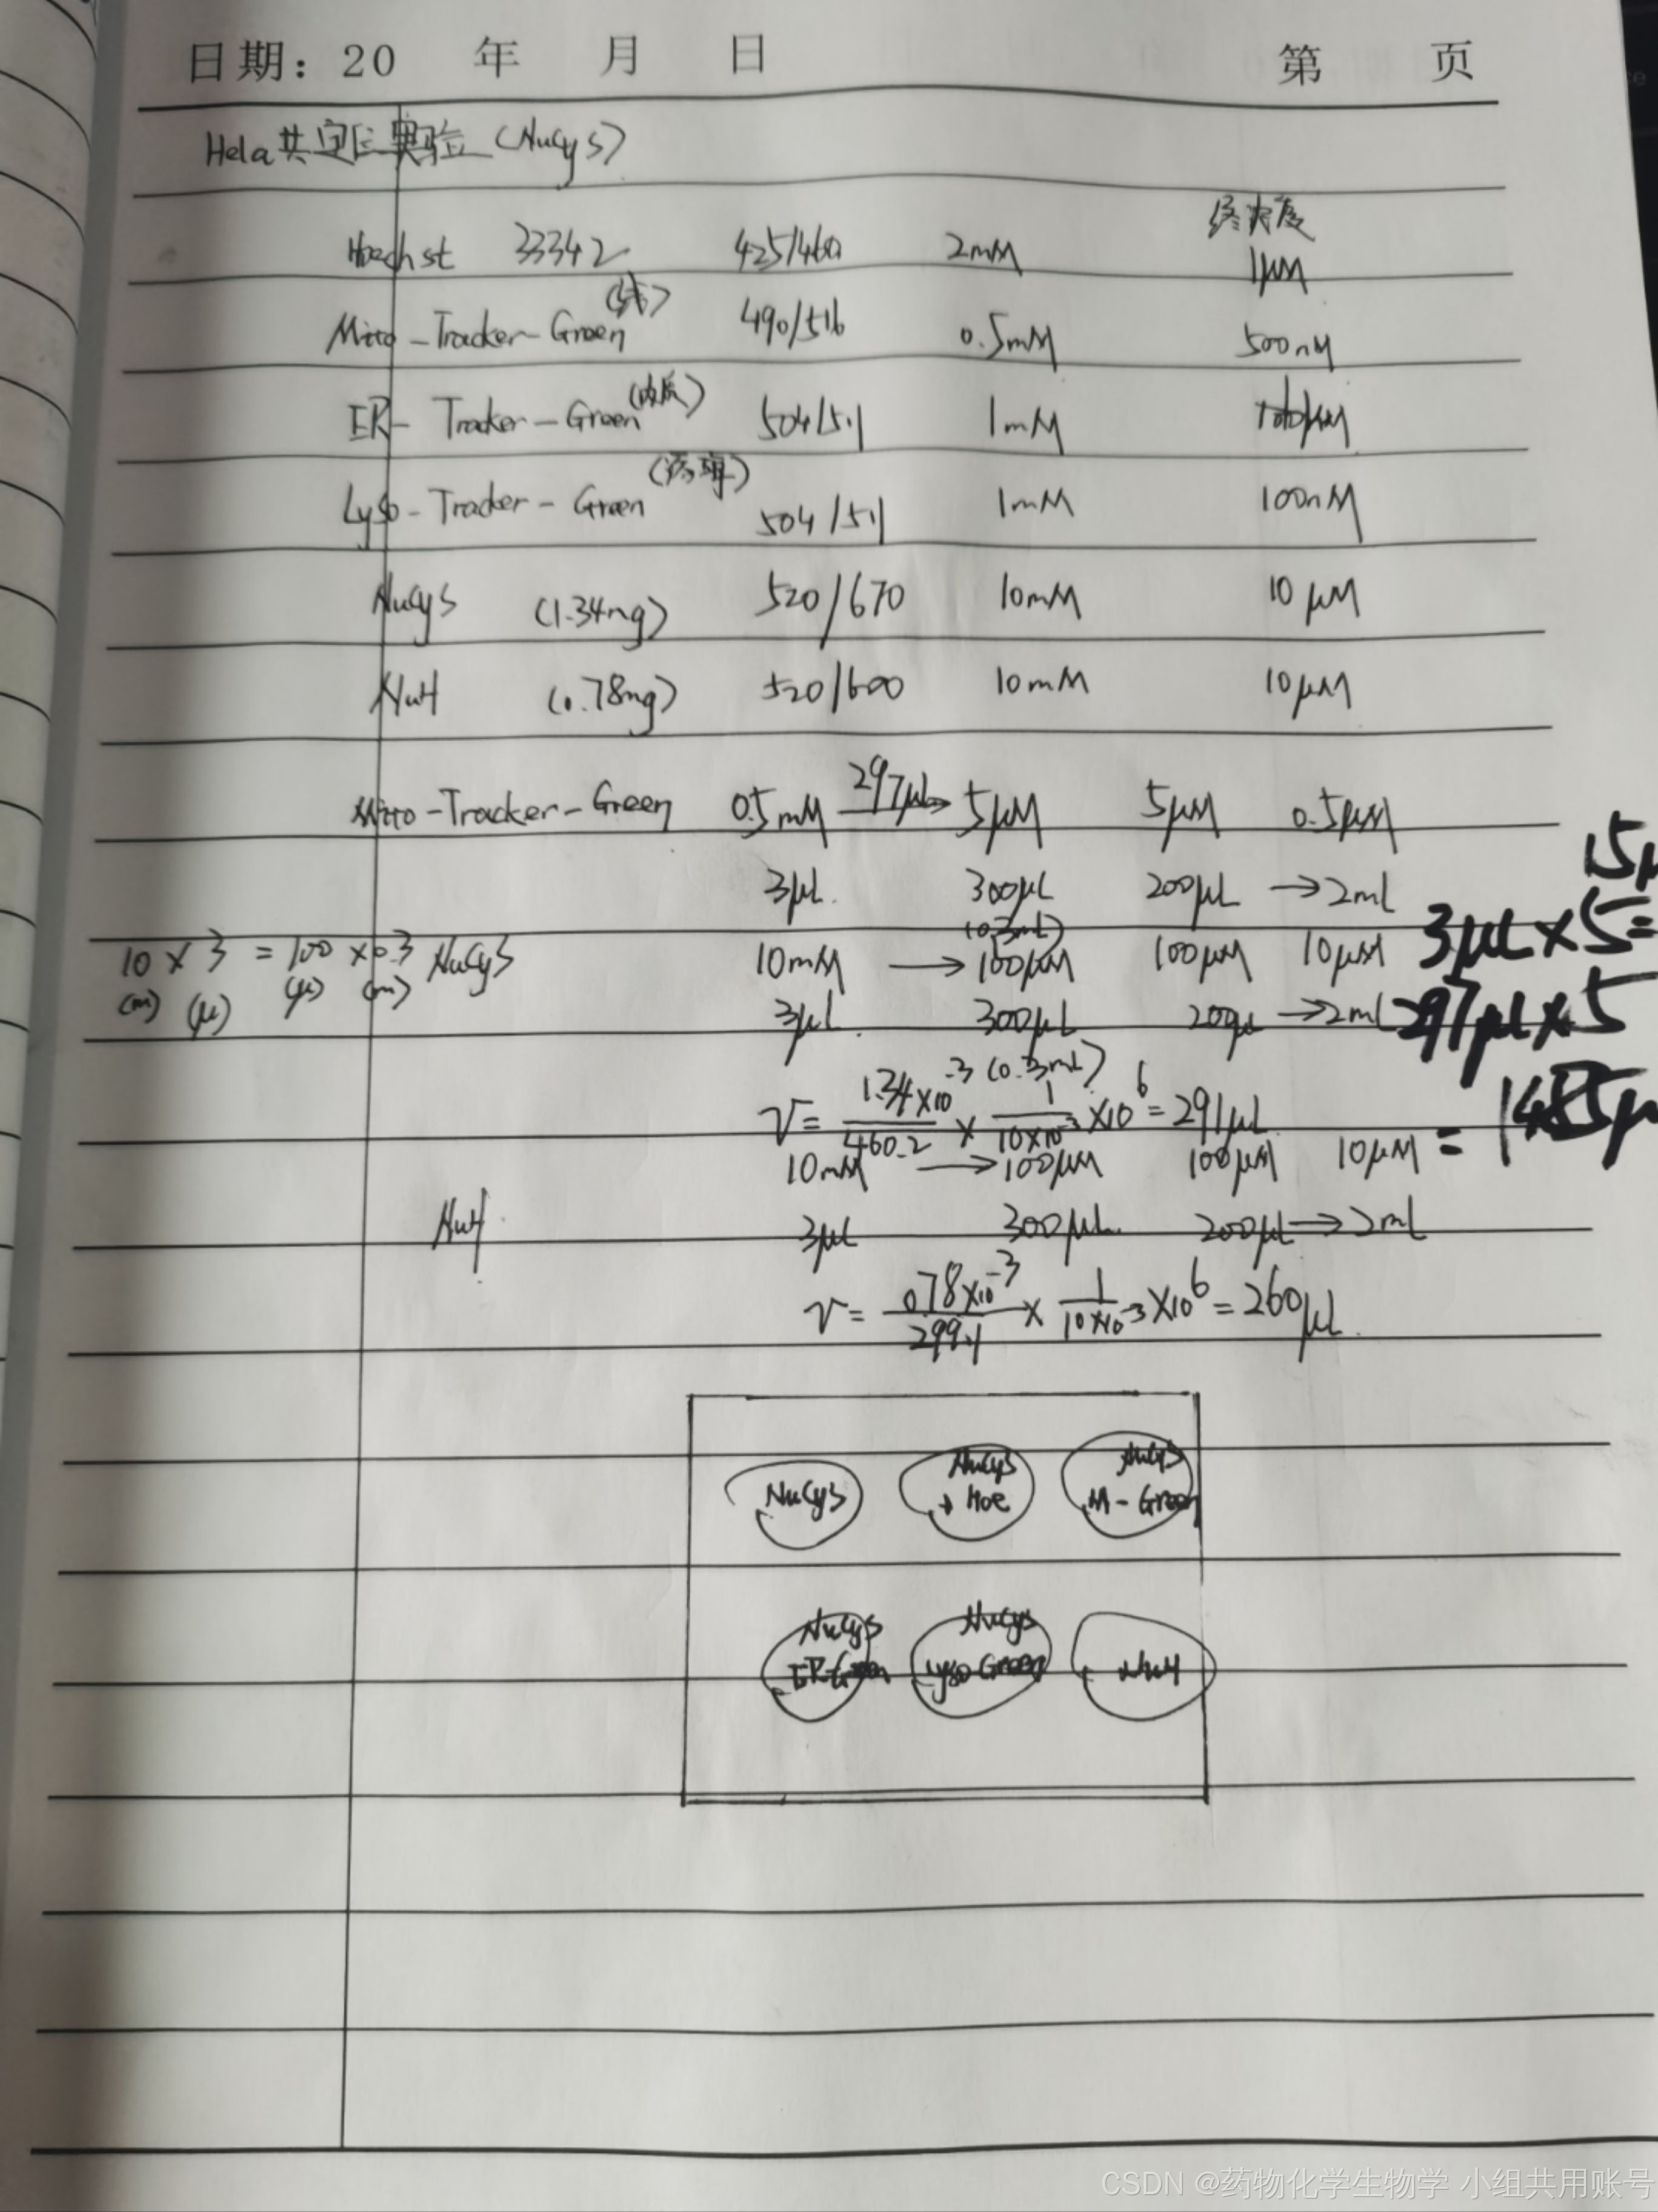 日期: 20 年 月 日 第 页
Hela共定位实验 (NuCys)
终浓度
Hoechst 33342 425/460 2mM 1μM
Mito-Tracker-Green (线) 490/516 0.5mM 500nM
ER-Tracker-Green 504/511 1mM
Lyso-Tracker-Green (溶酶) 504/511 1mM 100nM
NuCys (1.34mg) 520/670 10mM 10μM
NuH (0.78mg) 520/600 10mM 10μM
Mito-Tracker-Green 0.5mM 297μL→ 5μM 5μM 0.5μM
15μ
3μL 300μL 200μL → 2ml
(0.3mL)
3μL×5=
10 × 3 = 100 × 0.3 NuCys 10mM → 100μM 100μM 10μM
(m) (μ) (μ) (m)
3μL 300μL 200μL → 2ml 297μL×5
(0.3mL)
V = 1.34×10⁻³/460.2 × 1/10×10⁻³ ×10⁶ = 291μL
= 1485μ
10mM → 100μM 100μM 10μM
NuH 3μL 300μL 200μL → 2ml
V = 0.78×10⁻³/299.1 × 1/10×10⁻³ ×10⁶ = 260μL
NuCys
NuCys
+ Hoe
NuCys
M-Green
NuCys
ER-Green
NuCys
Lyso Green
NuH
CSDN @药物化学生物学 小组共用账号